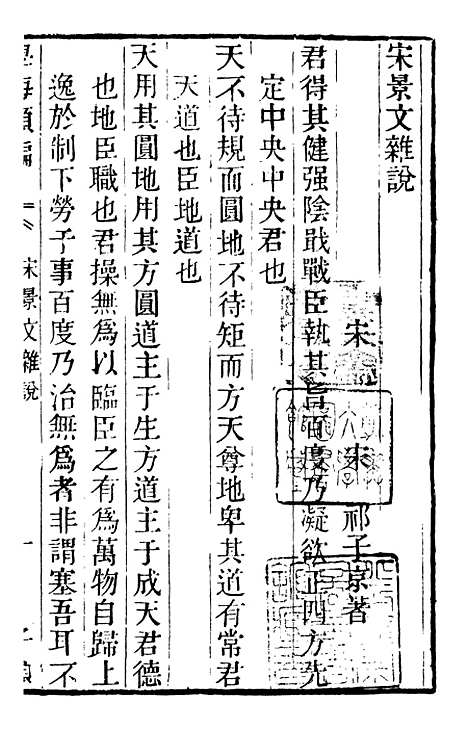 宋景文雜說
宋 宋 祁子京著
君得其健强陰戢戰臣執其旨百度乃凝欲正四方先
定中央中央君也
天不待規而圓地不待矩而方天尊地卑其道有常君
天道也臣地道也
天用其圓地用其方圓道主于生方道主于成天君德
也地臣職也君操無爲以臨臣之有爲萬物自歸上
逸於制下勞于事百度乃治無爲者非謂塞吾耳不
學海類編 宋景文雜說 一